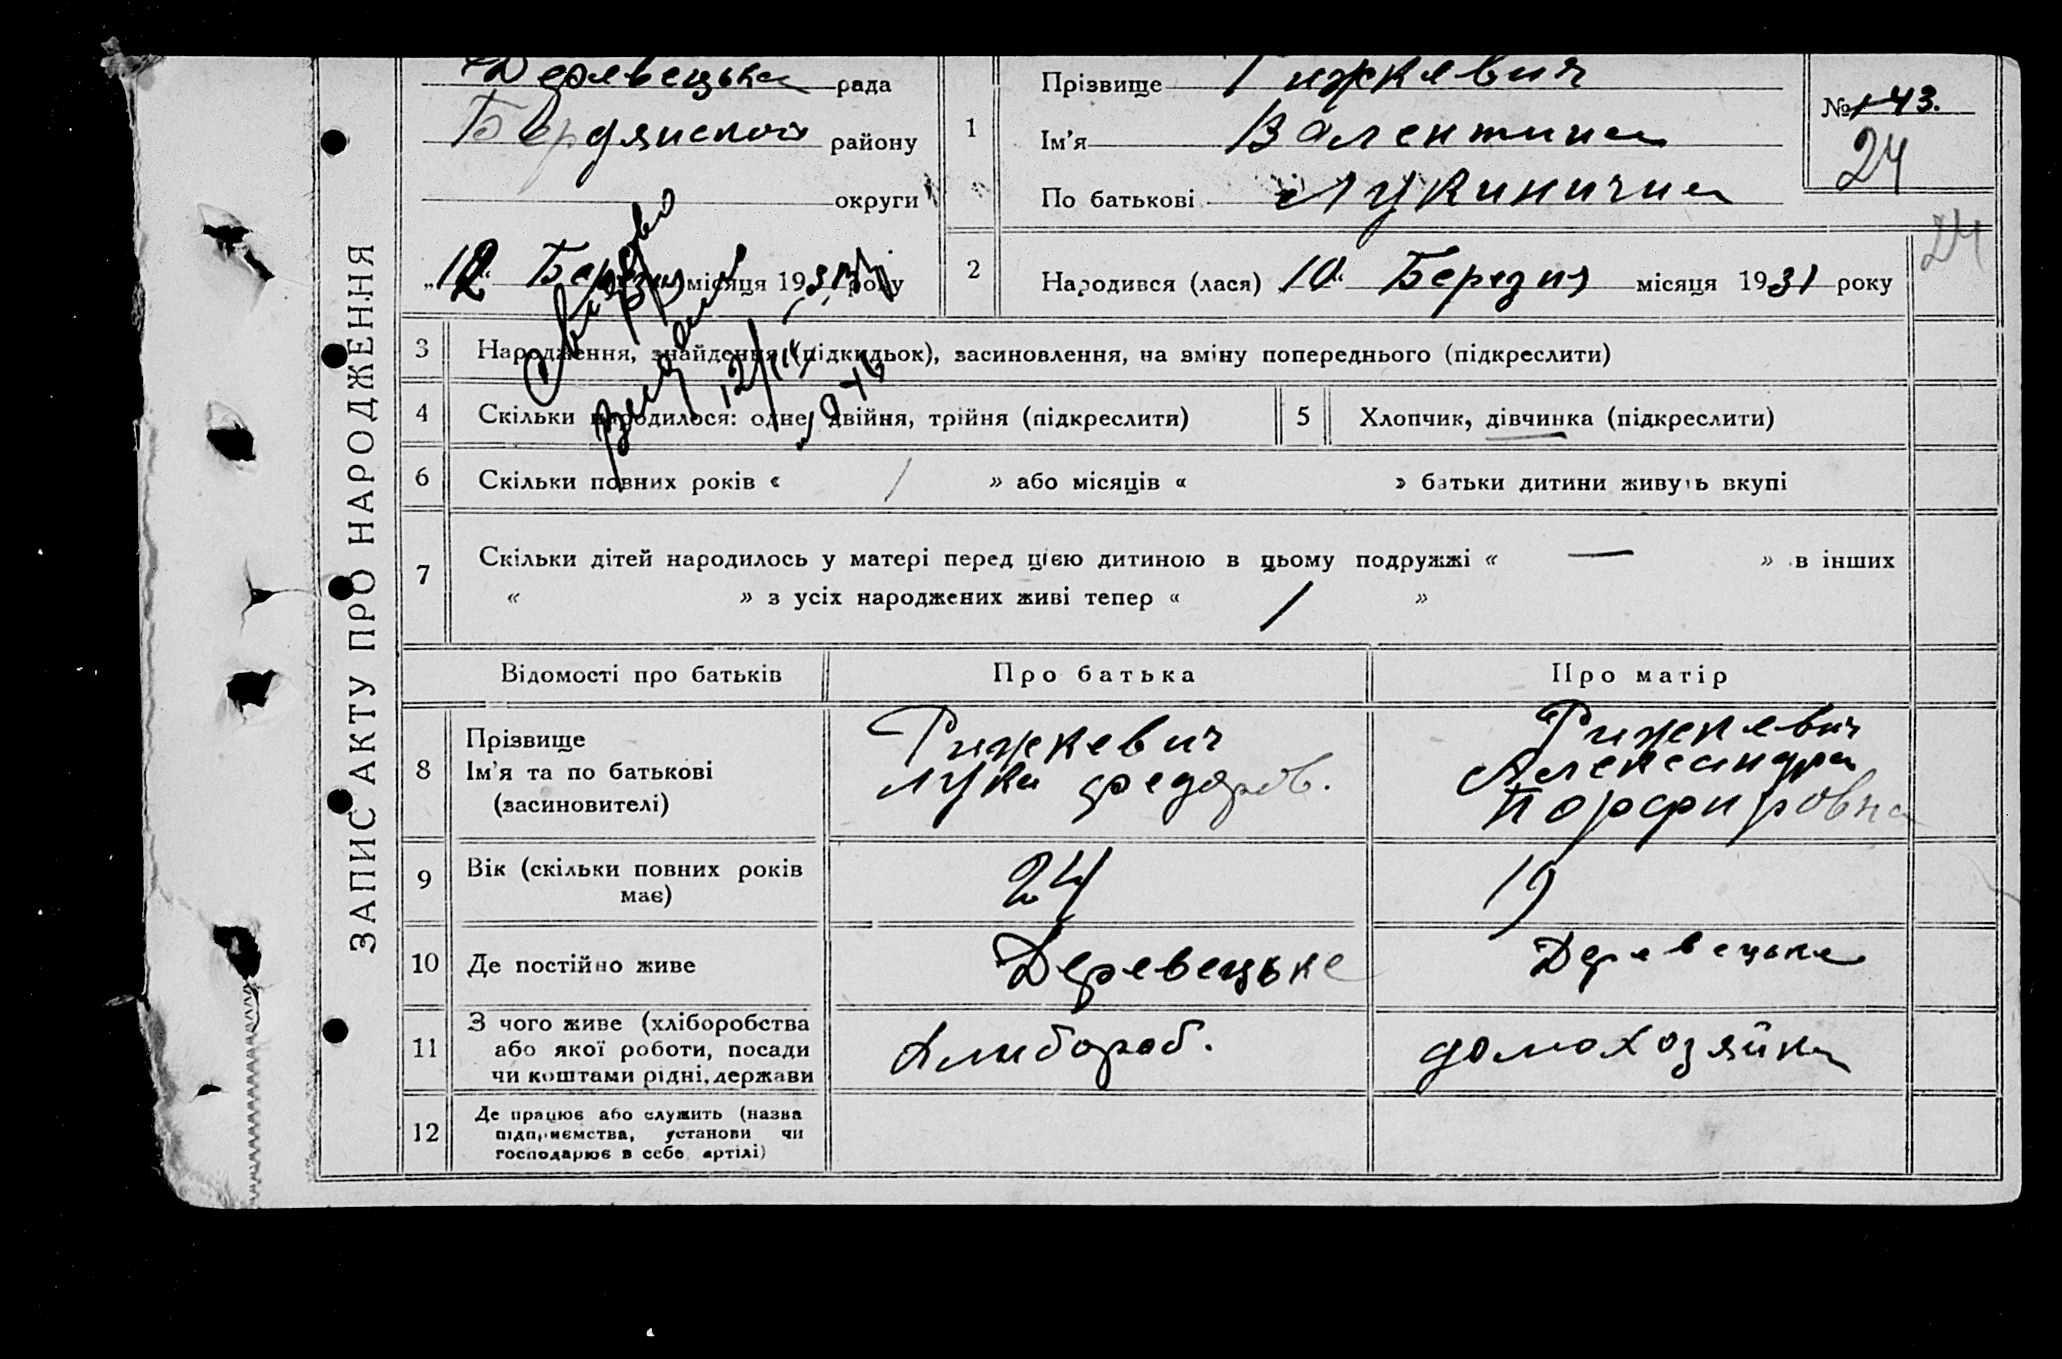 Деревецька рада
Бердянского району
округи
„12“ Березня місяця 1931 року
1
Прізвище Рижкевич
Ім'я Валентина
По батькові Лукинична
№ 143.
24
24
2 Народився (лася) „10“ Березня місяця 1931 року
3 Народження, знайдення (підкидьок), засиновлення, на зміну попереднього (підкреслити)
4 Скільки народилося: одне, двійня, трійня (підкреслити)
5 Хлопчик, дівчинка (підкреслити)
6 Скільки повних років « / » або місяців « » батьки дитини живуть вкупі
7 Скільки дітей народилось у матері перед цією дитиною в цьому подружжі « — » в інших
« » з усіх народжених живі тепер « / »
Відомості про батьків Про батька Про матір
8
Прізвище
Ім'я та по батькові
(засиновителі)
Рижкевич
Лука Федоров.
Рижкевич
Александра
Порфировна
9 Вік (скільки повних років
має)
24
19
10 Де постійно живе Деревецьке Деревецьке
11
З чого живе (хліборобства
або якої роботи, посади
чи коштами рідні, держави
хлибороб.
домохозяйка
12
Де працює або служить (назва
підприємства, установи чи
господарює в себе, артілі)
ЗАПИС АКТУ ПРО НАРОДЖЕННЯ